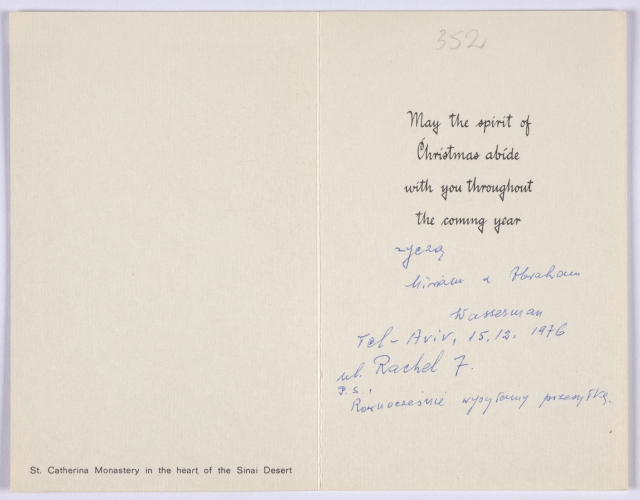 352
May the spirit of
Christmas abide
with you throughout
the coming year
życzą
Miriam i Abraham
Wasserman
Tel-Aviv, 15.12. 1976
ul. Rachel 7.
P.S.
Równocześnie wysyłamy przesyłkę.
St. Catherina Monastery in the heart of the Sinai Desert